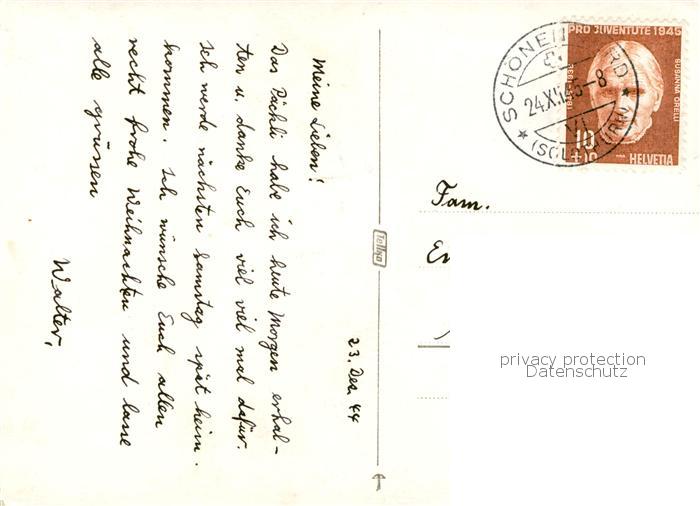 Meine Lieben!
Das Päckli habe ich heute Morgen erhal-
ten u. danke Euch viel viel mal dafür.
Ich werde nächsten Samstag spät heim-
kommen. Ich wünsche Euch allen
recht frohe Weihnachten und lasse
alle grüssen
Walter.
23. Dez. 44
Tellko
SCHÖNENWERD
24.XII.45-8
VI
(SOLOTHURN)
PRO JUVENTUTE 1945
SUSANNA ORELLI
10
+10
HELVETIA
Fam.
privacy protection
Datenschutz